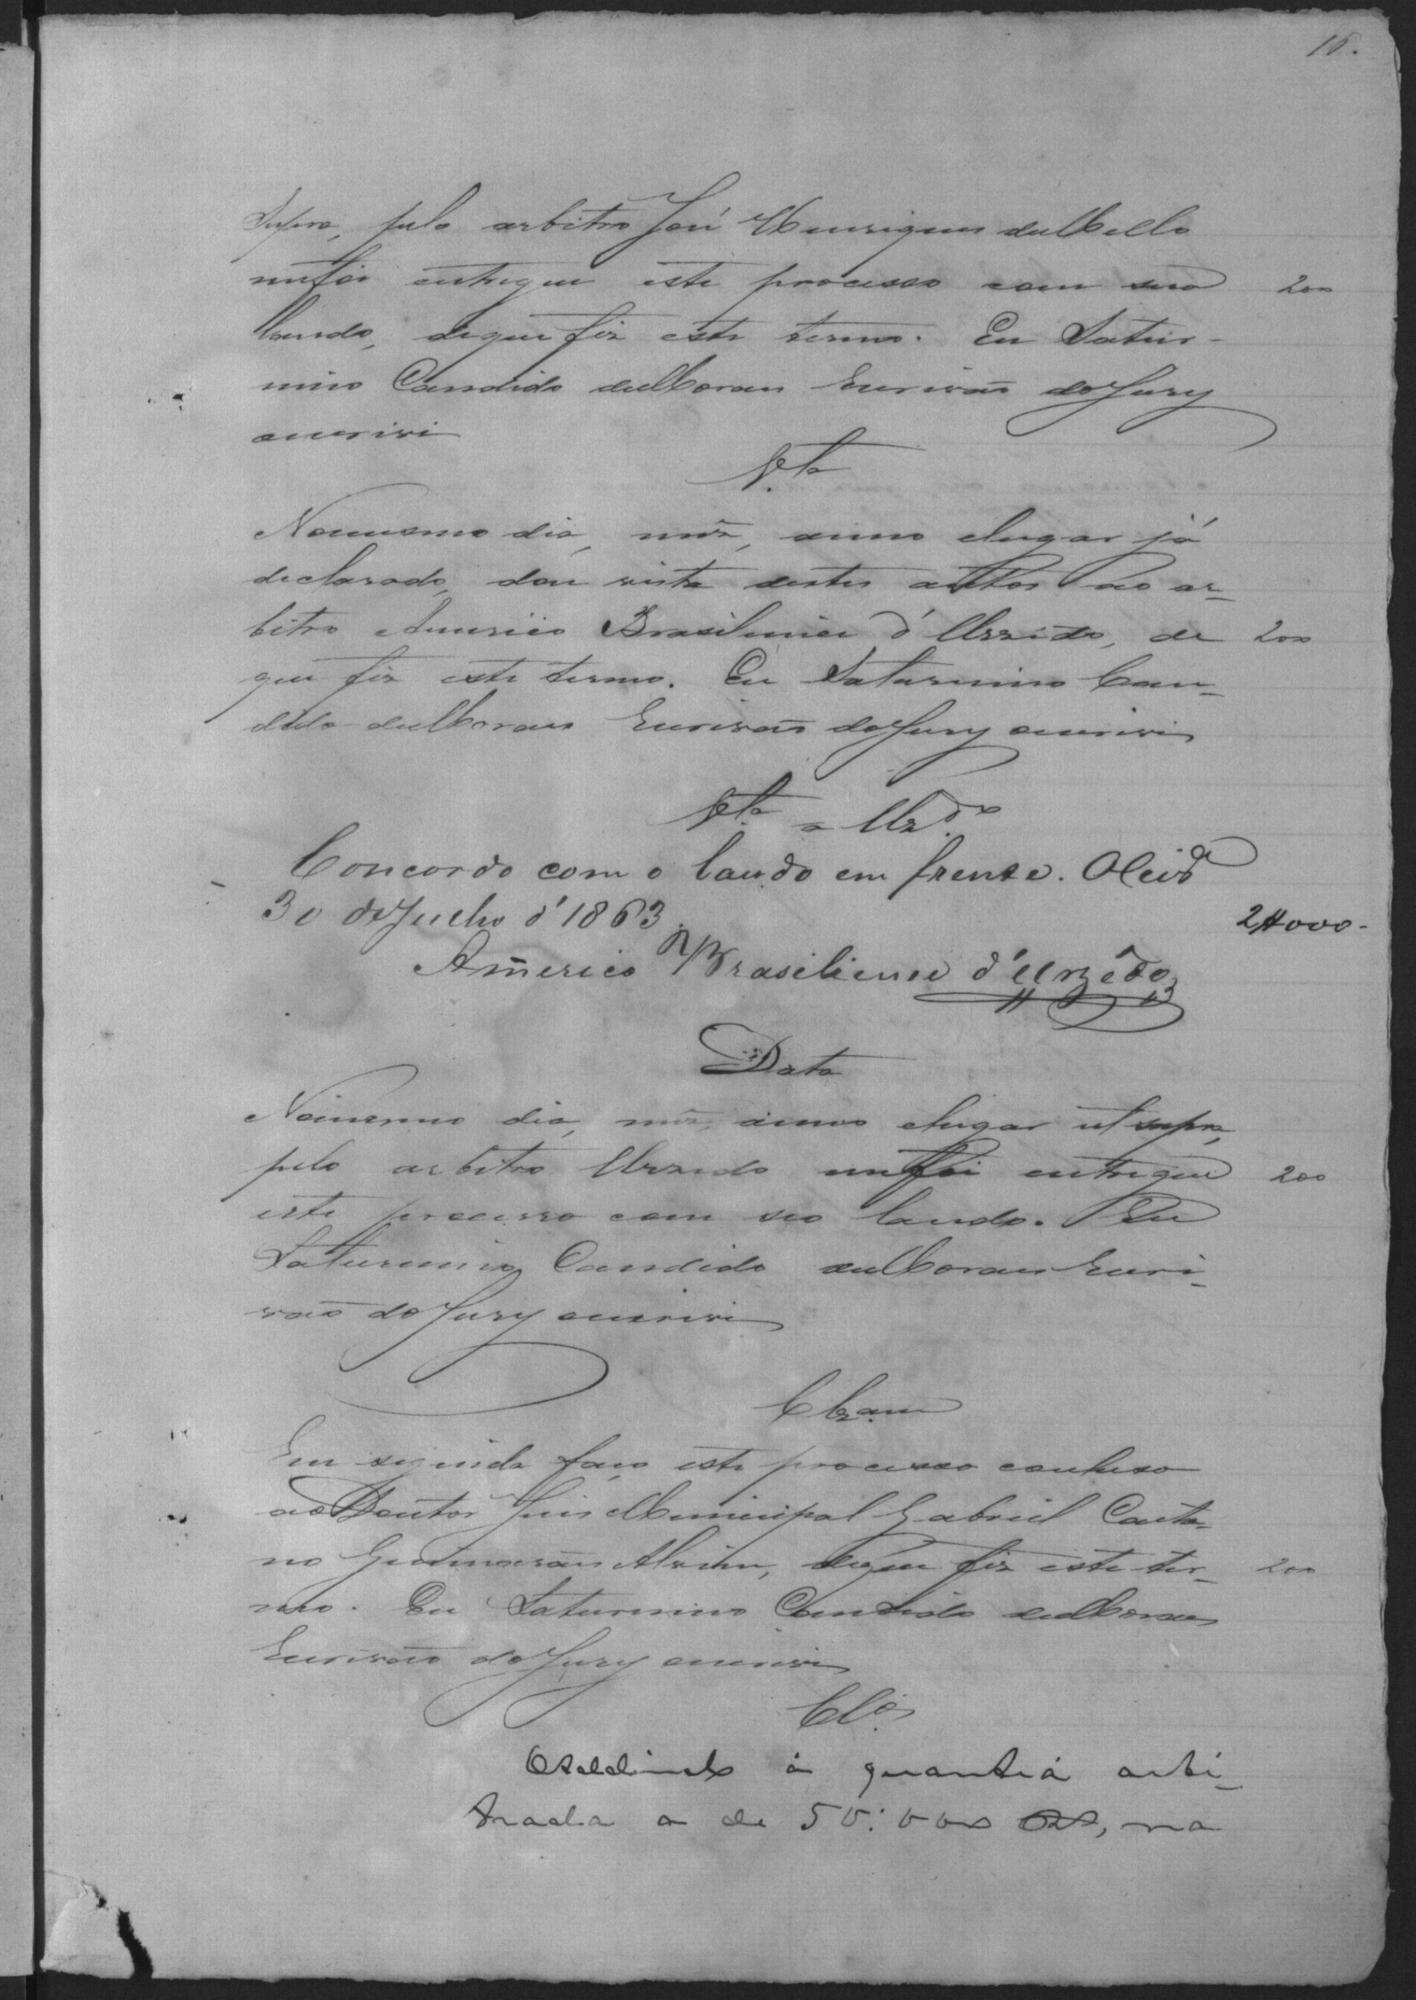 15.
Supra, pelo arbitro José Henriques de Mello
me foi entregue este processo com seo 200
laudo, de que fiz este termo. Eu Satur-
nino Candido de Moraes Escrivaõ do Jury
escrivi
V.ta
No mesmo dia, mêz, anno e lugar já
declarado, dou vista destes autos ao ar-
bitro Americo Brasiliense d'Urzedo, de 200
que fiz este termo. Eu Saturnino Can-
dido de Moraes Escrivaõ do Jury escrivi
V.ta a Urz.do
Concordo com o laudo em frente.
30 de Julho d'1863. 2#000
Americo Brasiliense d'Urzêdo
Data
No mesmo dia, mêz, anno e lugar ut supra,
pelo arbitro Urzedo me foi entregue 200
este processo com seo laudo. Eu
Saturnino Candido de Moraes Escri-
vaõ do Jury escrivi
Clzam
Em seguida faço este processo concluso
ao Doutor Juis Municipal Gabriel Caeta-
no Guimaraẽs Alvim, de que fiz este ter- 200
mo. Eu Saturnino Candido de Moraes
Escrivaõ do Jury escrivi
Cl.os
á quantia arbi-
trada a de 50:000 na